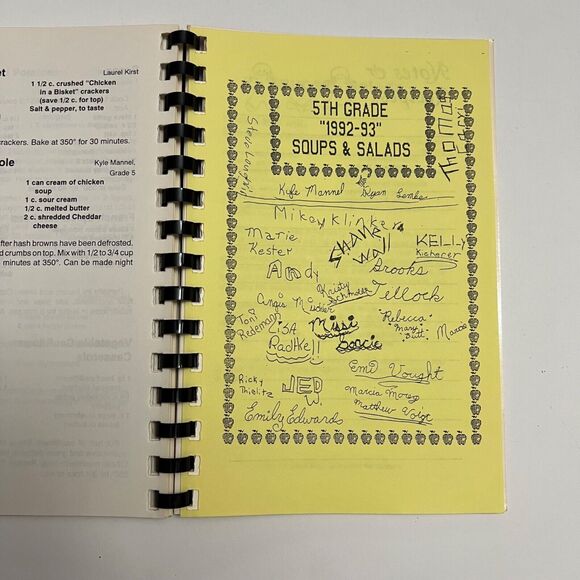 et
Laurel Kirst
1 1/2 c. crushed "Chicken
in a Bisket" crackers
(save 1/2 c. for top)
Salt & pepper, to taste
crackers. Bake at 350° for 30 minutes.
ole
Kyle Mannel,
Grade 5
1 can cream of chicken
soup
1 c. sour cream
1/2 c. melted butter
2 c. shredded Cheddar
cheese
fter hash browns have been defrosted.
d crumbs on top. Mix with 1/2 to 3/4 cup
minutes at 350°. Can be made night
5TH GRADE
"1992-93"
SOUPS & SALADS
Steve
Thomas
Kyle Mannel Ryan
Mikey Klinker
Marie
Kester
SHANE
Wall
KELLY
Andy
Brooks
Kristy
Angie
Tellock
Toni
Redemann
LISA
Radtke!!
Missi
Rebecca
Mary
Butt
Marcos
Emi Vought
Ricky
Thielitz
JED
W.
Marcia
Matthew
Emily Edwards